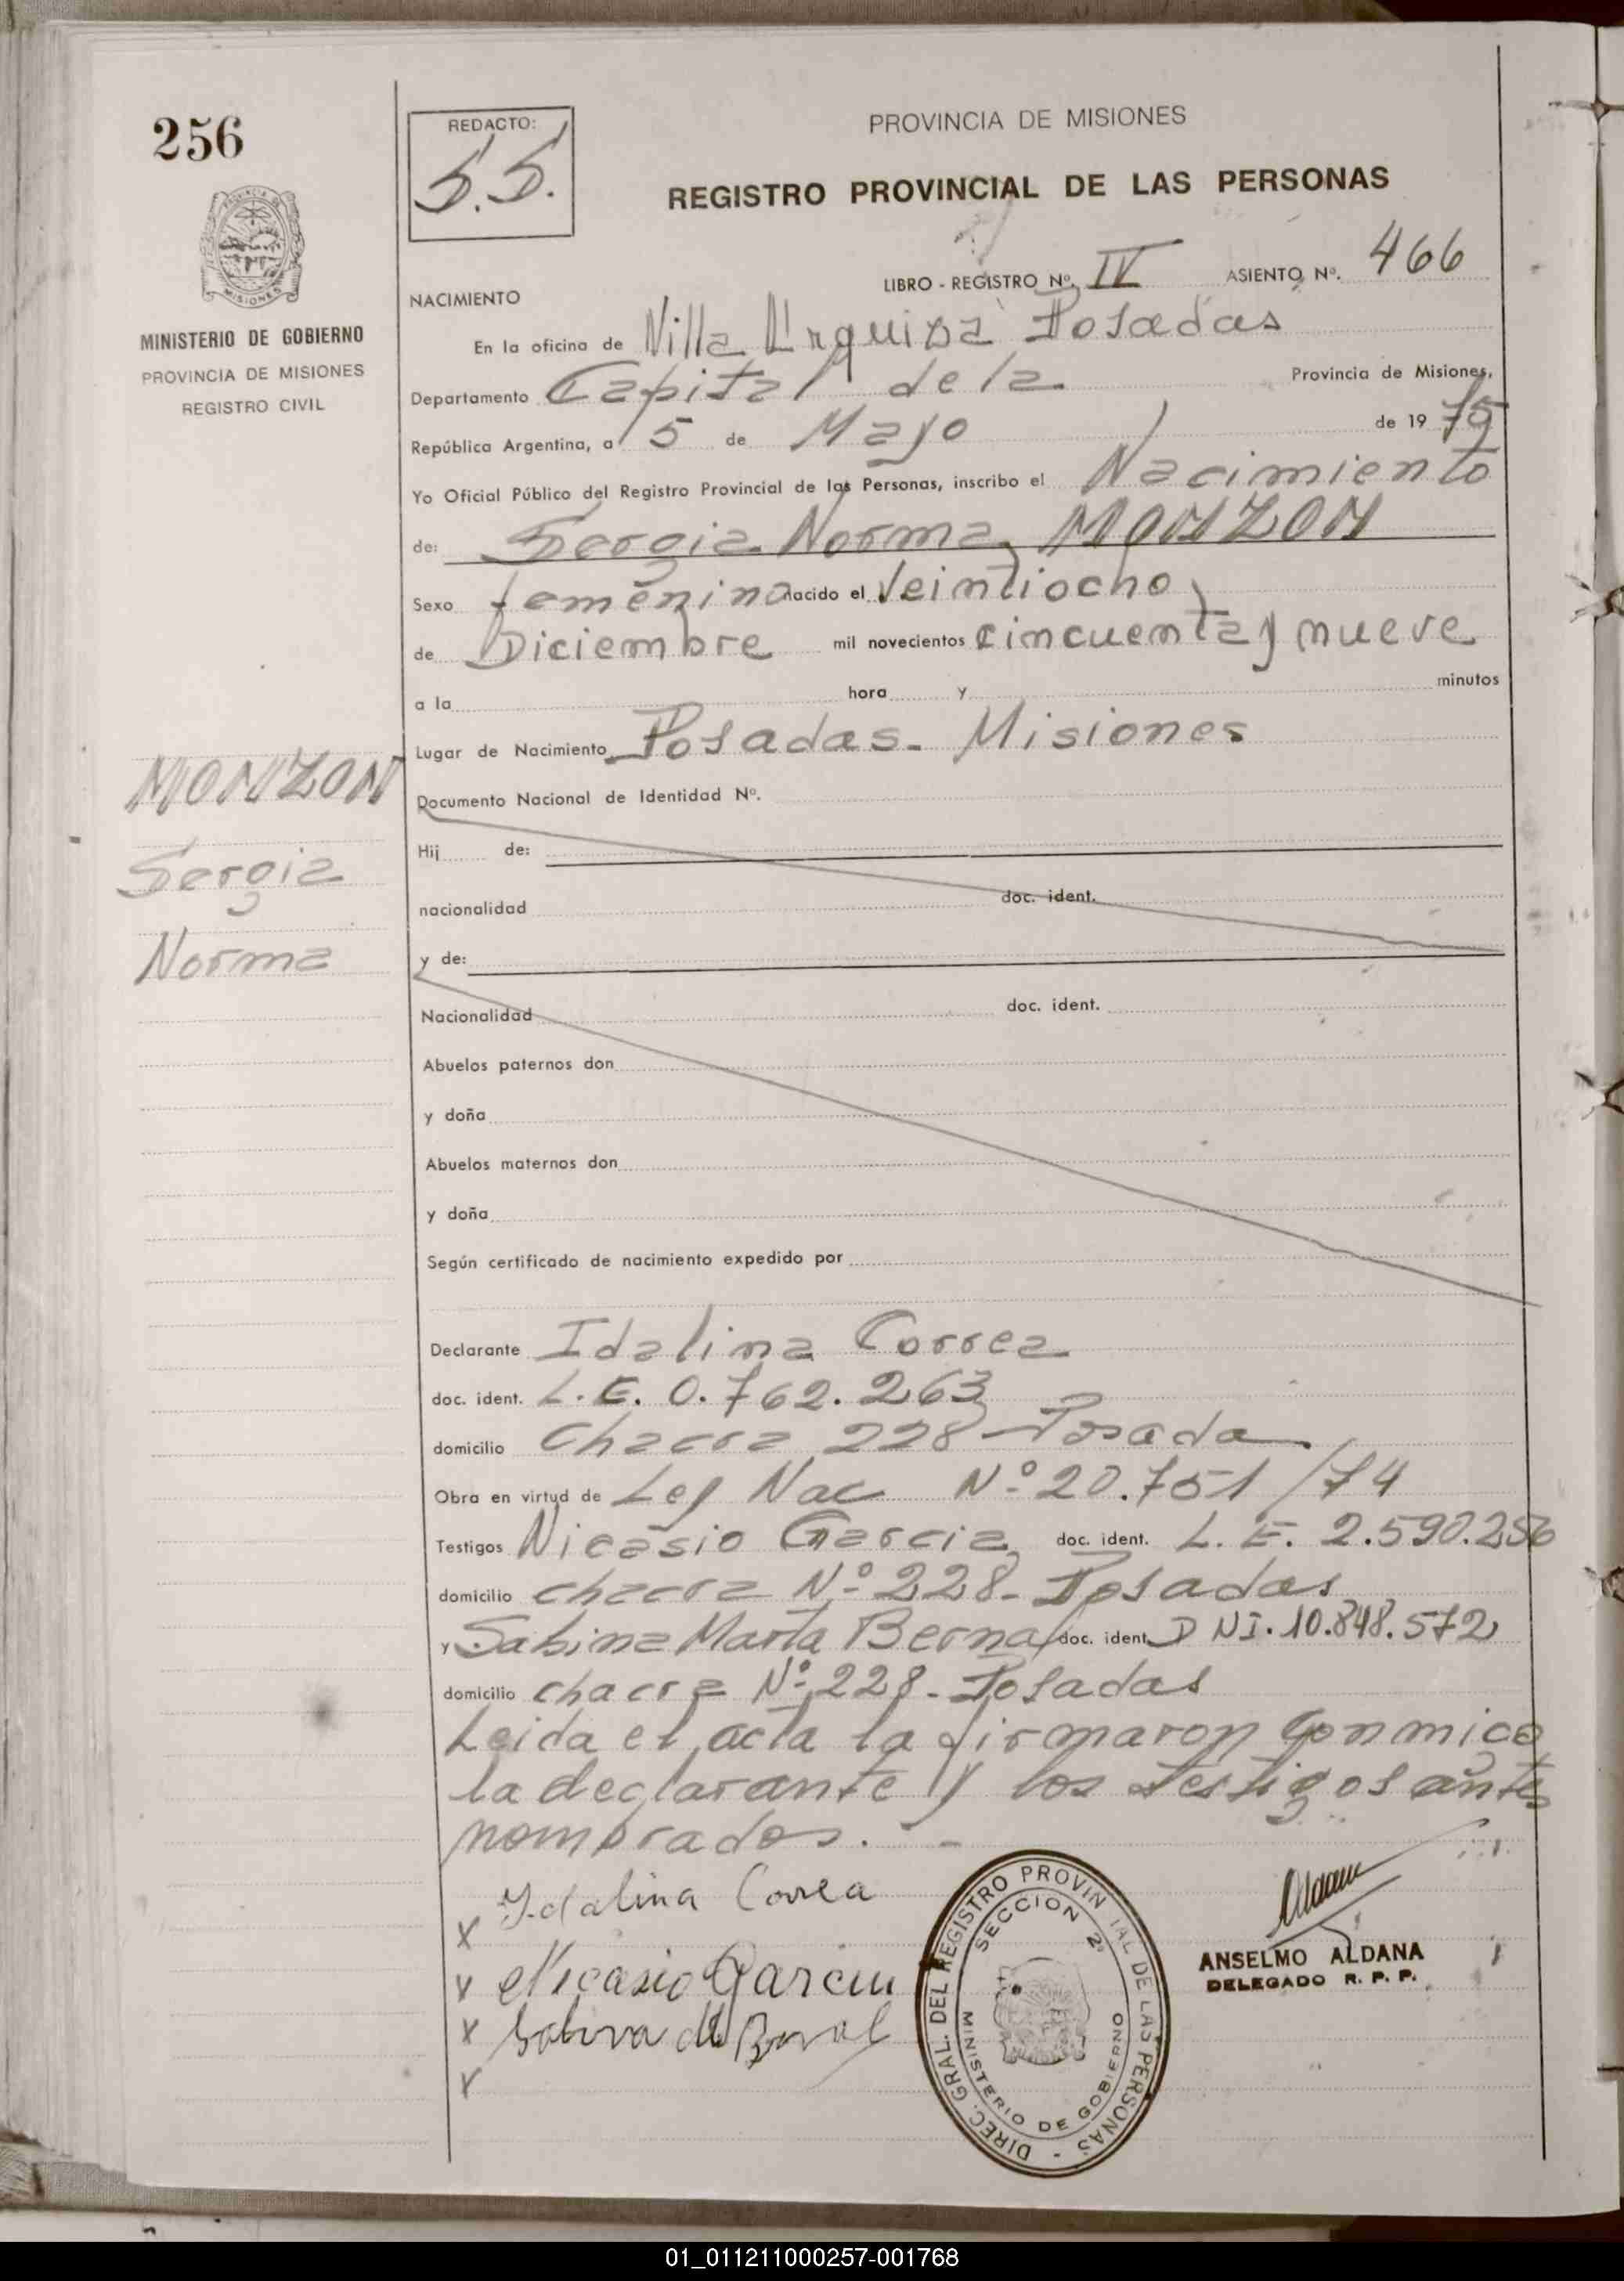 256
REDACTO:
S.S.
PROVINCIA DE MISIONES
REGISTRO PROVINCIAL DE LAS PERSONAS
LIBRO - REGISTRO Nº. IV ASIENTO Nº. 466
MISIONES
MINISTERIO DE GOBIERNO
PROVINCIA DE MISIONES
REGISTRO CIVIL
NACIMIENTO
En la oficina de Villa Urquiza Posadas
Departamento Capital de la Provincia de Misiones,
República Argentina, a 15 de Mayo de 1975
Yo Oficial Público del Registro Provincial de las Personas, inscribo el Nacimiento
de: Sergia Norma MONZON
Sexo femenino nacido el Veintiocho
de Diciembre mil novecientos cincuenta y nueve
a la hora y minutos
Lugar de Nacimiento Posadas - Misiones
MONZON
Sergia
Norma
Documento Nacional de Identidad Nº.
Hij de:
nacionalidad doc. ident.
y de:
Nacionalidad doc. ident.
Abuelos paternos don
y doña
Abuelos maternos don
y doña
Según certificado de nacimiento expedido por
Declarante Idalina Correa
doc. ident. L.E. 0.762.263
domicilio Chacra 228 - Posada
Obra en virtud de Ley Nac Nº 20.751/74
Testigos Nicasio Garcia doc. ident. L.E. 2.590.256
domicilio chacra Nº 228 - Posadas
y Sabina Marta Bernal doc. ident. DNI. 10.848.572
domicilio chacra Nº 228 - Posadas
Leida el acta la firmaron conmigo
la declarante y los testigos antes
nombrados. -
x Idalina Correa
x Nicasio Garcia
x
x
DIREC. GRAL. DEL REGISTRO PROVINCIAL DE LAS PERSONAS -
SECCION 2ª
MINISTERIO DE GOBIERNO
ANSELMO ALDANA
DELEGADO R. P. P.
01_011211000257-001768